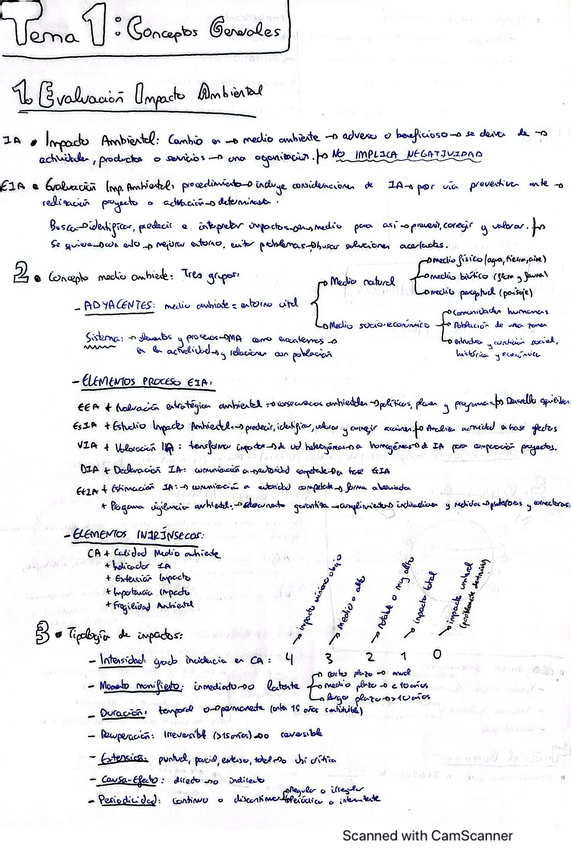 Tema 1: Conceptos Generales
1. Evaluación Impacto Ambiental
IA • Impacto Ambiental: Cambio en → medio ambiente → adverso o beneficioso → se deriva de →
actividades, productos o servicios → una organización. NO IMPLICA NEGATIVIDAD
EIA • Evaluación Imp. Ambiental: procedimiento → incluye consideraciones de IA → por vía preventiva ante →
realización proyecto o actuación → determinada.
Busca → identificar, predecir e interpretar impactos → en medio para así → prevenir, corregir y valorar.
Se quiere → con esto → mejorar entorno, evitar problemas → buscar soluciones acertadas.
2 • Concepto medio ambiente: Tres grupos:
- ADYACENTES: medio ambiente = entorno vital
Medio natural
medio físico (agua, tierra, aire)
medio biótico (flora y fauna)
medio perceptual (paisaje)
Medio socio-económico
Comunidades humanas
Población de una zona
y condición social,
histórica y económica
Sistema: → elementos y procesos → MA como encontramos →
en la actualidad → y relaciones con población
- ELEMENTOS PROCESO EIA:
EEA + Evaluación estratégica ambiental → consecuencias ambientales → políticas, planes y programas
EsIA + Estudio Impacto Ambiental → predecir, identificar, valorar y corregir acciones. Analiza actividad a base efectos
VIA + Valoración IA: transformar impactos → de ud heterogéneas a homogéneas de IA para comparación proyectos.
DIA + Declaración IA: comunicación a → autoridad competente → en base EIA
EtIA + Estimación IA: → comunicación a autoridad competente → forma abreviada
+ Programa vigilancia ambiental: → documento garantiza → cumplimiento → indicaciones y medidas → protectoras y correctoras
- ELEMENTOS INTRÍNSECOS:
CA + Calidad Medio ambiente
+ Indicador IA
+ Extensión Impacto
+ Importancia Impacto
+ Fragilidad Ambiental
3 • Tipología de impactos:
impacto mínimo o bajo
Medio o alto
notable o muy alto
impacto total
impacto umbral
- Intensidad: grado incidencia en CA: 4 3 2 1 0
- Momento manifiesto: inmediato → o latente
corto plazo → anual
medio plazo → < 10 años
largo plazo → > 10 años
- Duración: temporal o → permanente
- Recuperación: Irreversible → o reversible
- Extensión: puntual, parcial, extenso, total → ubi crítica
- Causa-Efecto: directo → o indirecto
- Periodicidad: continuo o discontinuo
regular o irregular
periódico o intermitente
Scanned with CamScanner